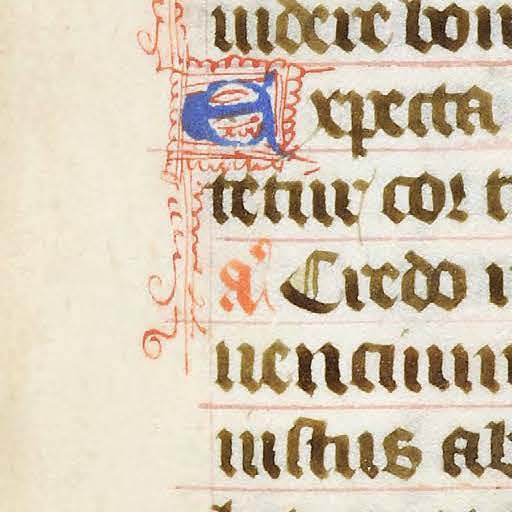 uidere bon
Expecta
tetur cor t
a Credo u
uencium
iustus ab